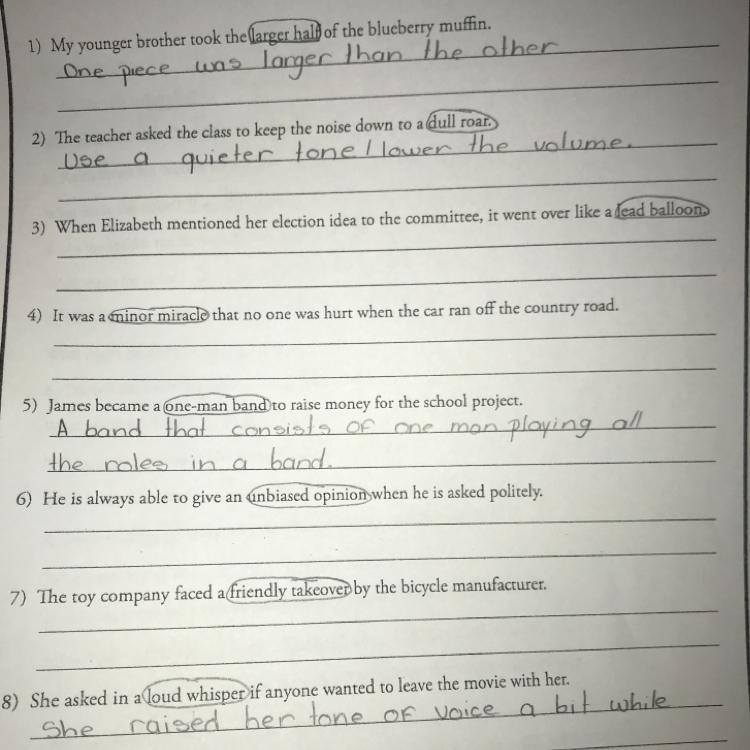 1) My younger brother took the larger half of the blueberry muffin.
One piece was larger than the other
2) The teacher asked the class to keep the noise down to a dull roar.
Use a quieter tone/lower the volume.
3) When Elizabeth mentioned her election idea to the committee, it went over like a lead balloon.
4) It was a minor miracle that no one was hurt when the car ran off the country road.
5) James became a one-man band to raise money for the school project.
A band that consists of one man playing all
the roles in a band.
6) He is always able to give an unbiased opinion when he is asked politely.
7) The toy company faced a friendly takeover by the bicycle manufacturer.
8) She asked in a loud whisper if anyone wanted to leave the movie with her.
She raised her tone of voice a bit while